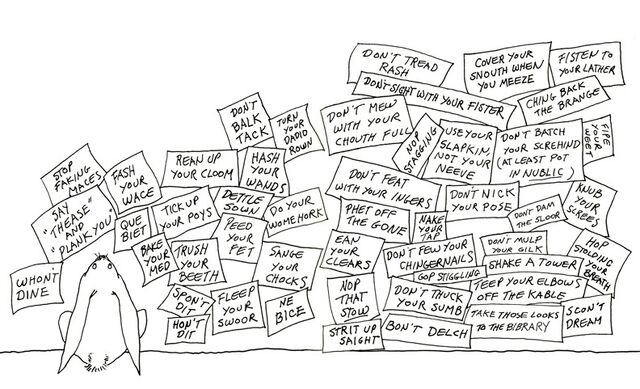 DON'T TREAD
RASH
COVER YOUR
SNOUTH WHEN
YOU MEEZE
FISTEN TO
YOUR LATHER
DON'T SIGHT WITH YOUR FISTER
CHING BACK
THE BRANGE
DON'T
BALK
TACK
TURN
YOUR
DADIO
ROWN
DON'T MEW
WITH YOUR
CHOUTH FULL
NOP
STAGGING
USE YOUR
SLAPKIN,
NOT YOUR
NEEVE
DON'T BATCH
YOUR SCREHIND
(AT LEAST POT
IN NUBLIS)
FIPE
YOUR
WEET
STOP
FAKING
MACES
FASH
YOUR
WACE
REAN UP
YOUR CLOOM
HASH
YOUR
WANDS
DON'T FEAT
WITH YOUR INGERS
DON'T NICK
YOUR POSE
KNUB
YOUR
SCREES
SAY
"THEASE"
AND
PLANK YOU"
QUE
BIET
TICK UP
YOUR POYS
DETTLE
SOWN
DO YOUR
WOMEHORK
PHET OFF
THE GONE
NAKE
YOUR
TAP
DON'T DAM
THE SLOOR
HOP
STOLDING
YOUR
BREATH
BAKE
YOUR
MED
TRUSH
YOUR
BEETH
PEED
YOUR
PET
SANGE
YOUR
CHOCKS
EAN
YOUR
CLEARS
DON'T FEW YOUR
CHINGERNAILS
DON'T MULP
YOUR GILK
GOP STIGGLING
SHAKE A TOWER
WHON'T
DINE
SPON'T
DIT
FLEEP
YOUR
SWOOR
NE
BICE
NOP
THAT
STOW
DON'T THUCK
YOUR SUMB
TEEP YOUR ELBOWS
OFF THE KABLE
HON'T
DIT
STRIT UP
SAIGHT
BON'T DELCH
TAKE THOSE LOOKS
TO THE BIBRARY
SCON'T
DREAM